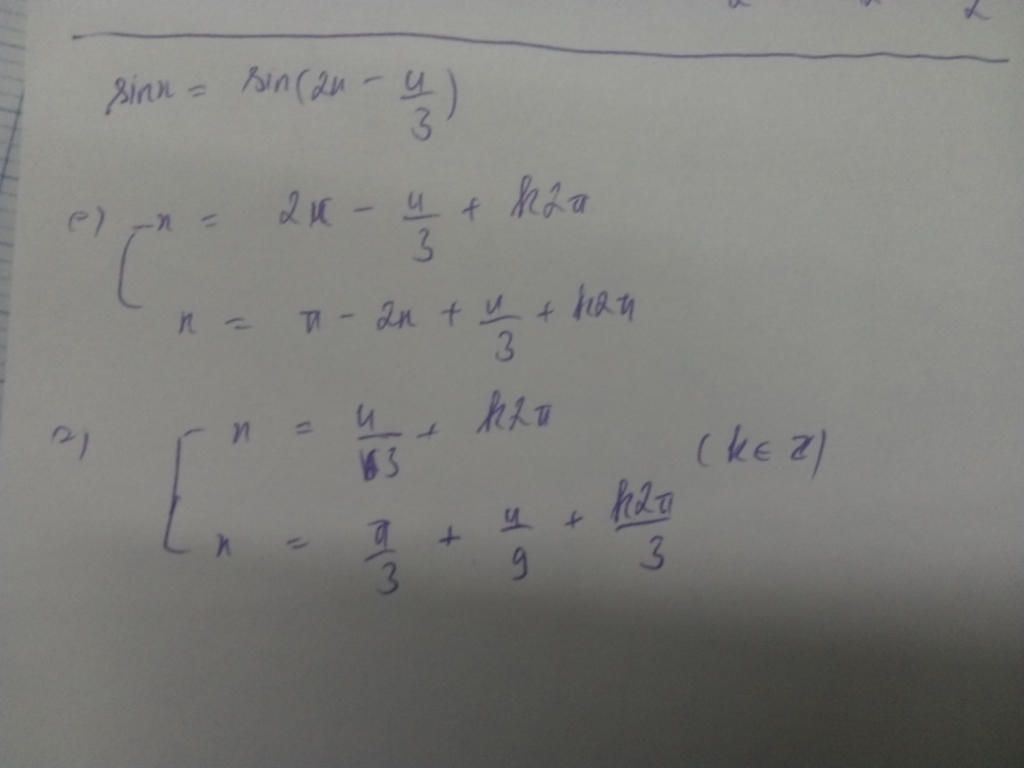 sinx = sin(2x - 4/3)
(=) x = 2x - 4/3 + k2π
x = π - 2x + 4/3 + k2π
x = 4/3 + k2π
(k ∈ Z)
x = π/3 + 4/9 + k2π/3